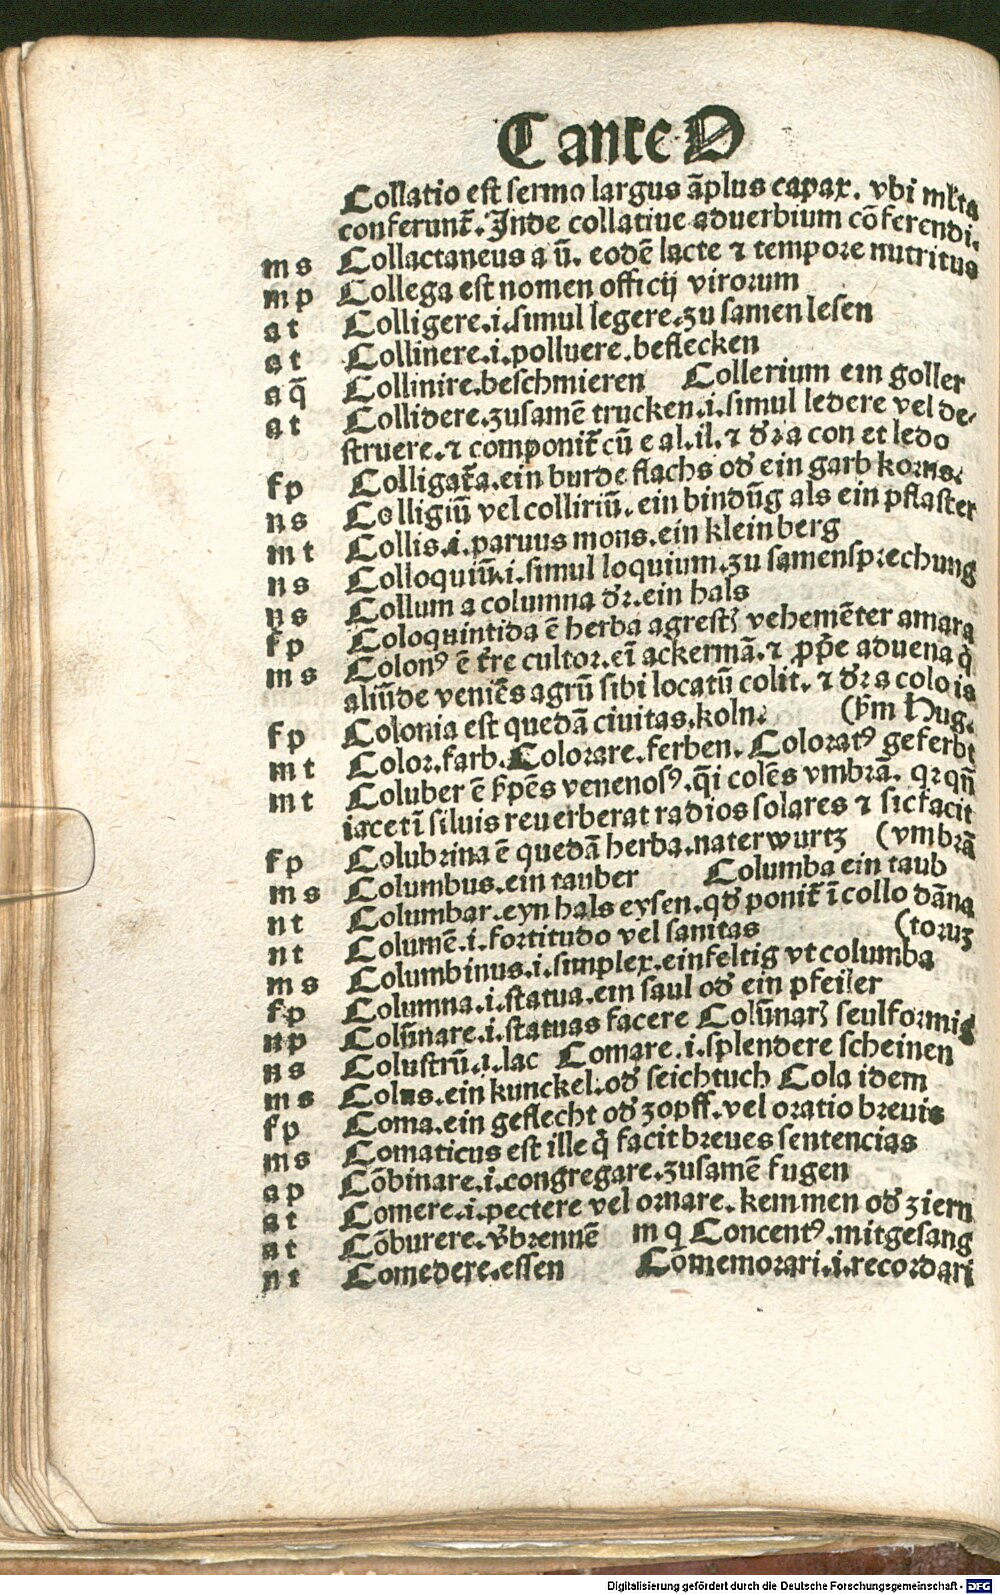 C ante O
Collatio est sermo largus āplus capax. vbi ml̄ta
conferunt̄. Inde collatiue aduerbium cōferendi.
m s Collactaneus a ū. eodē lacte ⁊ tempore nutritus
m p Collega est nomen officij virorum
a t Colligere.i.simul legere.zu samen lesen
a t Collinere.i.polluere.beflecken
a q̄ Collinire.beschmieren Collerium ein goller
a t Collidere.zusamē trucken.i.simul ledere vel de-
struere.⁊ componit̄ cū e al.il.⁊ dr̄ a con et ledo
f p Colligat̄a.ein burde flachs od̄ ein garb korns.
n s Colligiū vel colliriū.ein bindūg als ein pflaster
m t Collis.i.paruus mons.ein klein berg
n s Colloquiū.i.simul loquium.zu samensprechung
n s Collum a columna dr̄.ein hals
f p Coloquintida ē herba agrestꝭ vehemēter amara
m s Colonꝰ ē t̄re cultor.eī ackermā.⁊ ꝓpe aduena q̄
aliūde veniēs agrū sibi locatū colit.⁊ dr̄ a colo is
f p Colonia est quedā ciuitas.koln. (ẜm Hug.
m t Color.farb.Colorare.ferben.Coloratꝰ geferbt
m t Coluber ē ẜpēs venenosꝰ.q̄i colēs vmbrā. qꝛ qn̄
iacet ī siluis reuerberat radios solares ⁊ sic facit
f p Colubrina ē quedā herba.naterwurtz (vmbrā
m s Columbus.ein tauber Columba ein taub
n t Columbar.eyn hals eysen.qd̄ ponit̄ ī collo dāna
n t Columē.i.fortitudo vel sanitas (toruꝫ
m s Columbinus.i.simplex.einfeltig vt columba
f p Columna.i.statua.ein saul od̄ ein pfeiler
n p Colūnare.i.statuas facere Colūnarꝭ seulformig
n s Colustrū.i.lac Comare.i.splendere scheinen
m s Colus.ein kunckel.od̄ seichtuch Cola idem
f p Coma.ein geflecht od̄ zopff.vel oratio breuis
m s Comaticus est ille q̄ facit breues sentencias
a p Cōbinare.i.congregare.zusamē fugen
a t Comere.i.pectere vel ornare.kemmen od̄ ziern
a t Cōburere.v̄brennē m q Concentꝰ.mitgesang
n t Comedere.essen Comemorari.i.recordari
Digitalisierung gefördert durch die Deutsche Forschungsgemeinschaft - DFG